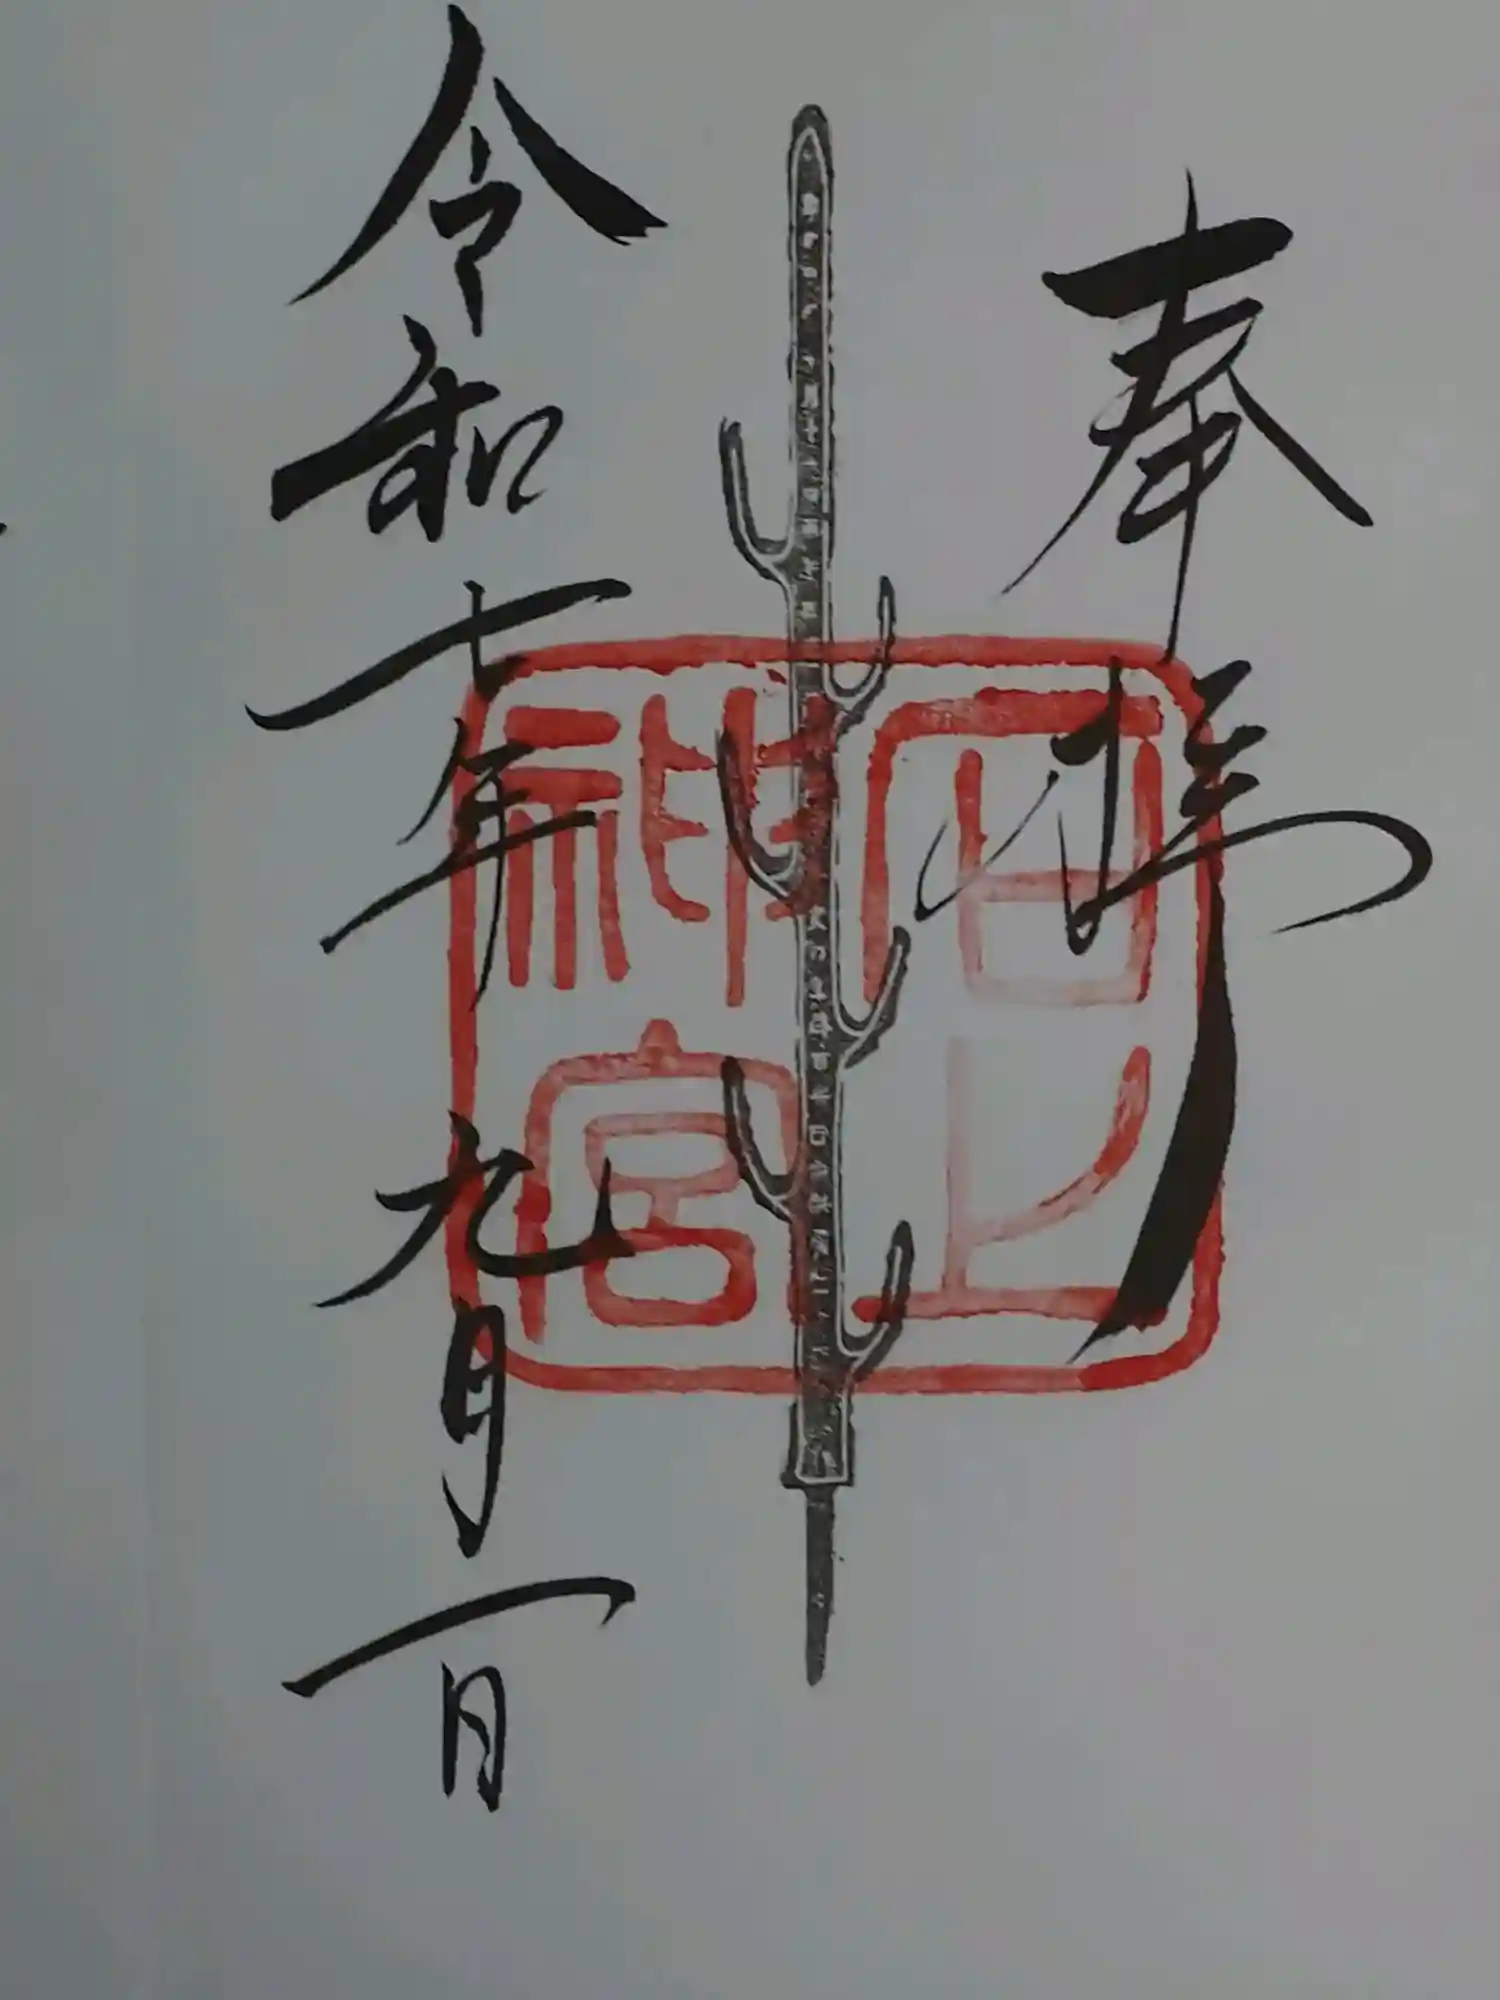 奉拝
石上
神宮
令和七年九月一日